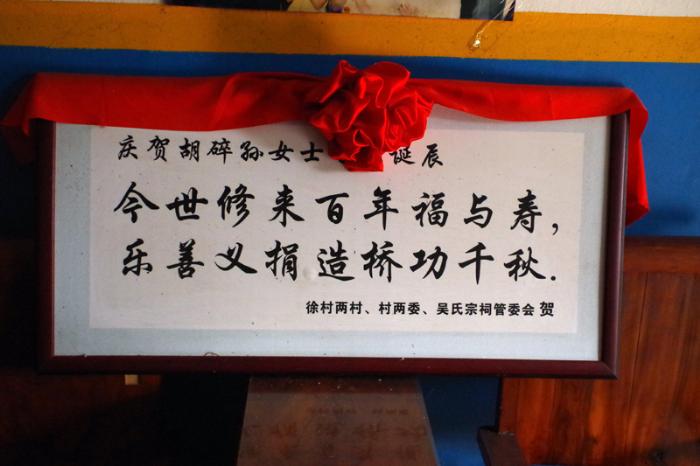 庆贺胡碎孙女士 诞辰
今世修来百年福与寿,
乐善义捐造桥功千秋.
徐村两村、村两委、吴氏宗祠管委会 贺